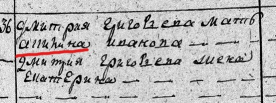 36 Дмитрия Григорьева мать
Акилина Иванова
Дмитрия Григорьева жена
Екатерина